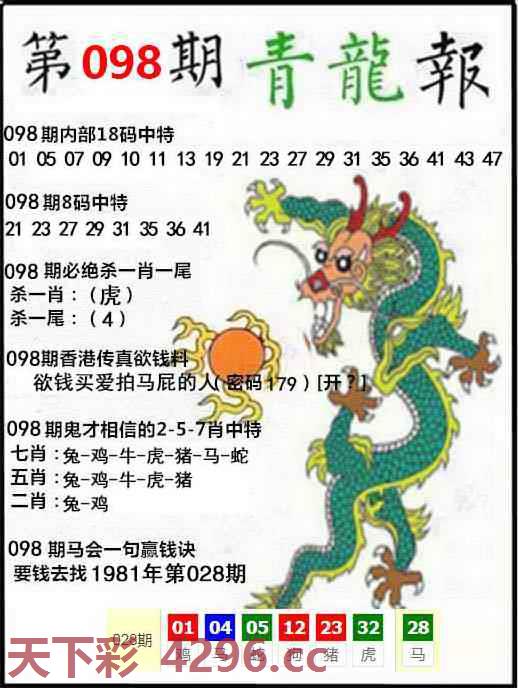 第098期青龍報
098期内部18码中特
01 05 07 09 10 11 13 19 21 23 27 29 31 35 36 41 43 47
098期8码中特
21 23 27 29 31 35 36 41
098 期必绝杀一肖一尾
杀一肖：（虎）
杀一尾：（4）
098期香港传真欲钱料
欲钱买爱拍马屁的人（密码179）[开？]
098 期鬼才相信的2-5-7肖中特
七肖：兔-鸡-牛-虎-猪-马-蛇
五肖：兔-鸡-牛-虎-猪
二肖：兔-鸡
098 期马会一句赢钱诀
要钱去找1981年第028期
028期 01 04 05 12 23 32 28
鸡 马 蛇 狗 猪 虎 马
天下彩 4296.cc